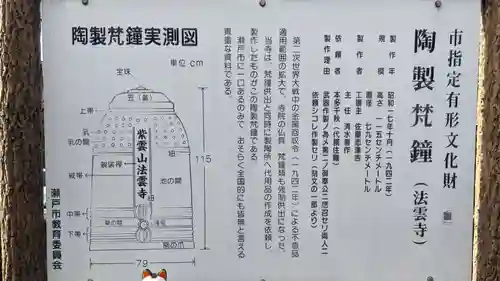 市指定有形文化財
陶製梵鐘（法雲寺）
製作年　昭和一七年十月（一九四二年）
規模　高さ　一一五センチメートル
直径　七九センチメートル
製作者　工匠主　佐藤志津吉
主任　清水喜作
依頼者　本多千秋（代期住職）
製作理由　武器作製ノ為メ第二ノ御奉公ニ応召セリ両人ニ
依頼シコレ作製セリ（刻文の一部より）
第二次世界大戦中の金属回収令（一九四二年）による不急品
適用範囲の拡大で、寺院の仏具、梵鐘類も強制供出になった。
当寺は、梵鐘供出と同時に製陶所へ代用品の作成を依頼し
製作したものがこの陶製梵鐘である。
瀬戸市に一口あるのみで、おそらく全国的にも皆無と言える
貴重な資料である。
陶製梵鐘実測図
単位cm
宝珠
笠（蓋）
上帯
乳の間
乳
紫雲山法雲寺
油
袈裟襷
池の間
縦帯
115
中帯
草の間
撞座
下帯
駒の爪
79
瀬戸市教育委員会